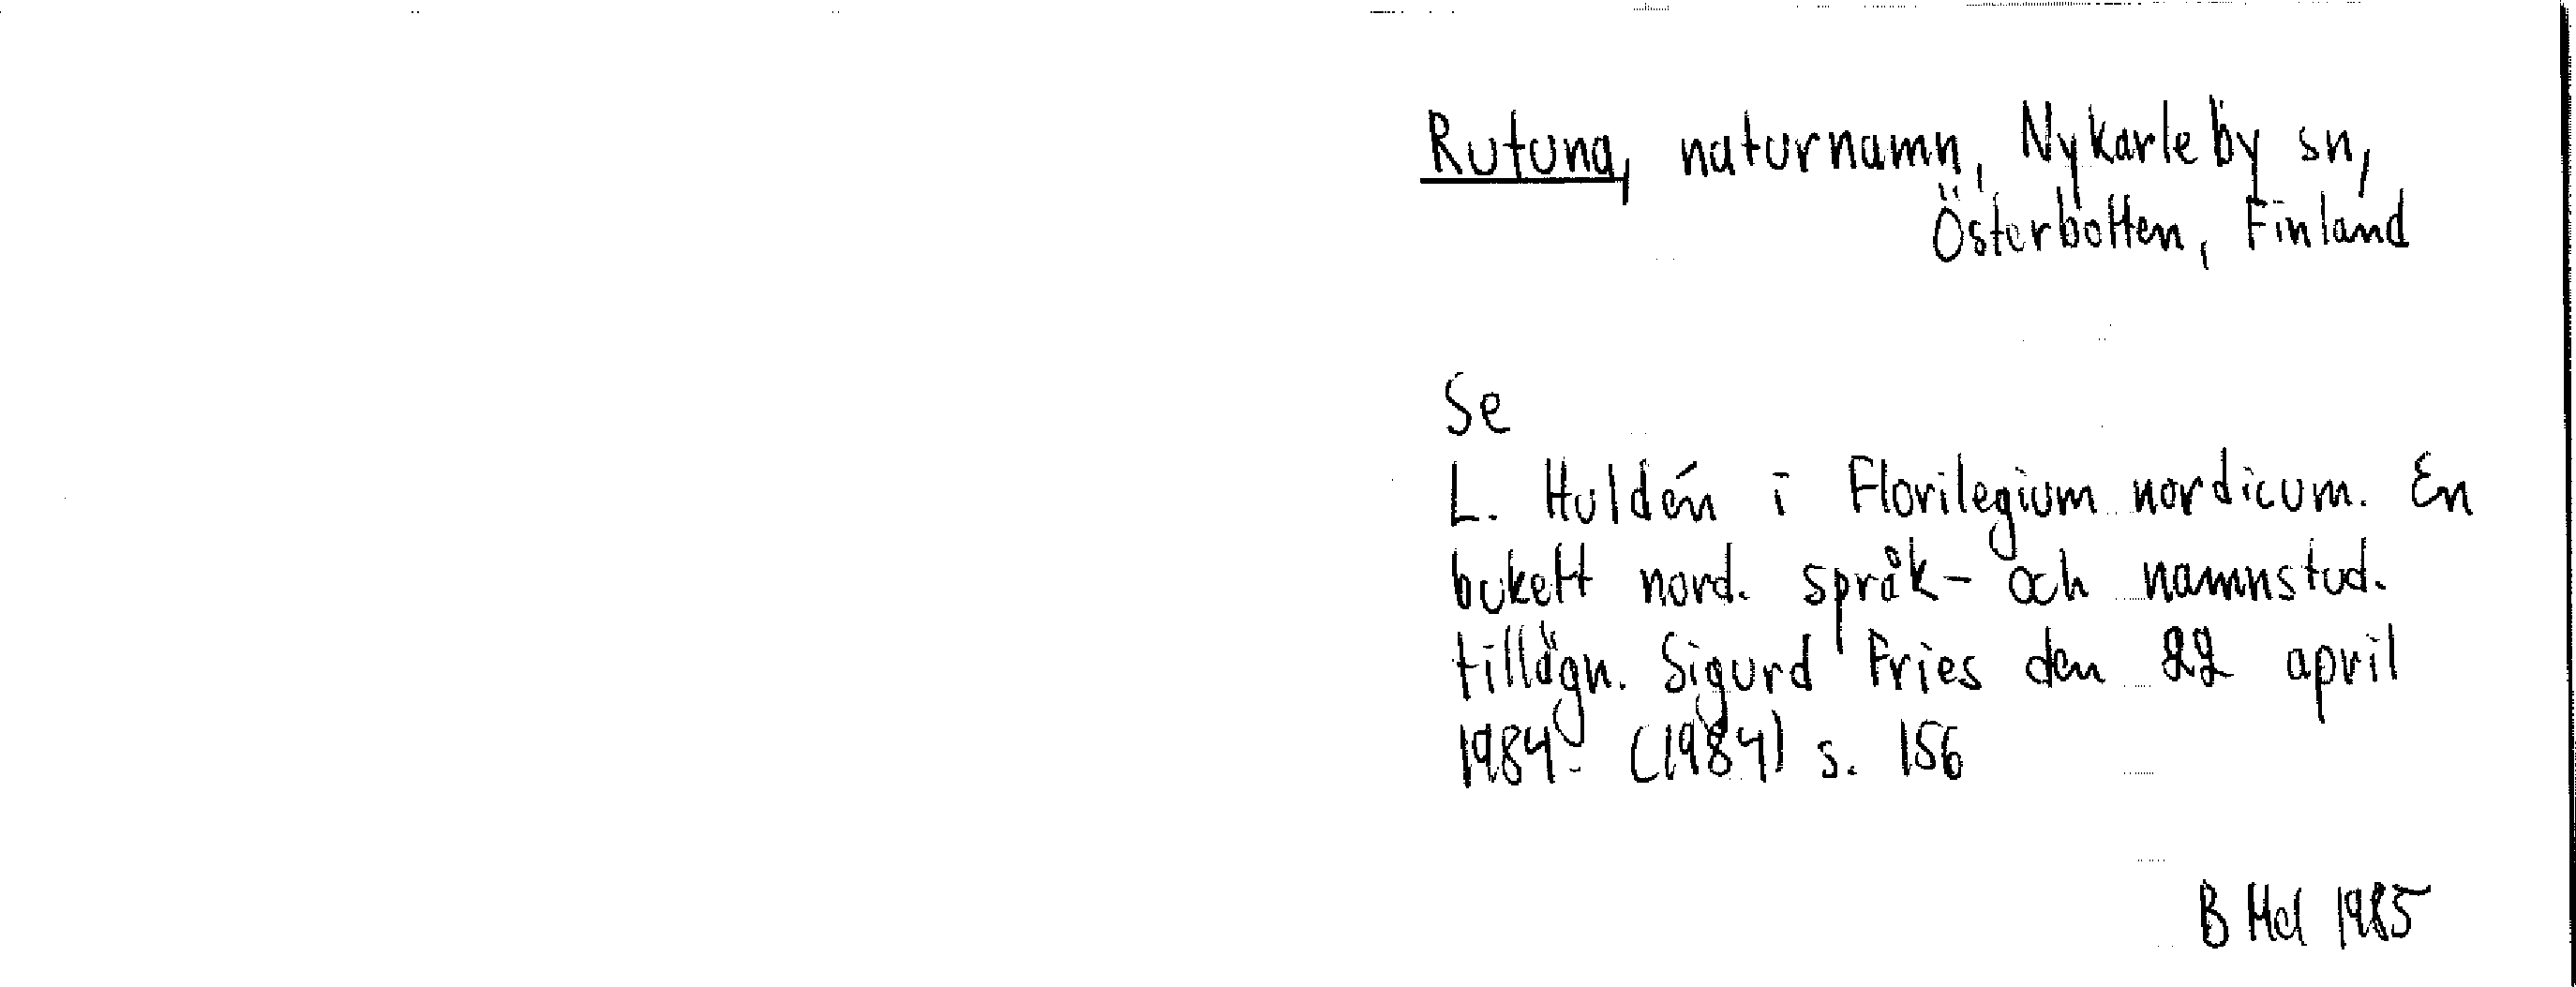 Rutuna, naturnamn, Nykarleby sn,
Österbotten, Finland
Se
L. Huldén i Florilegium nordicum. En
bukett nord. språk- och namnstud.
tillägn. Sigurd Fries den 22 april
1984. (1984) s. 156
B Hel 1985